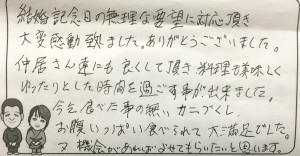 結婚記念日の無理な要望に対応頂き
大変感動致しました。ありがとうございました。
仲居さん達にも良くして頂き料理も美味しく
ゆったりとした時間を過ごす事が出来ました。
今迄食べた事の無いカニづくし
お腹いっぱい食べられて大満足でした。
又機会があればよせてもらいたいと思います。